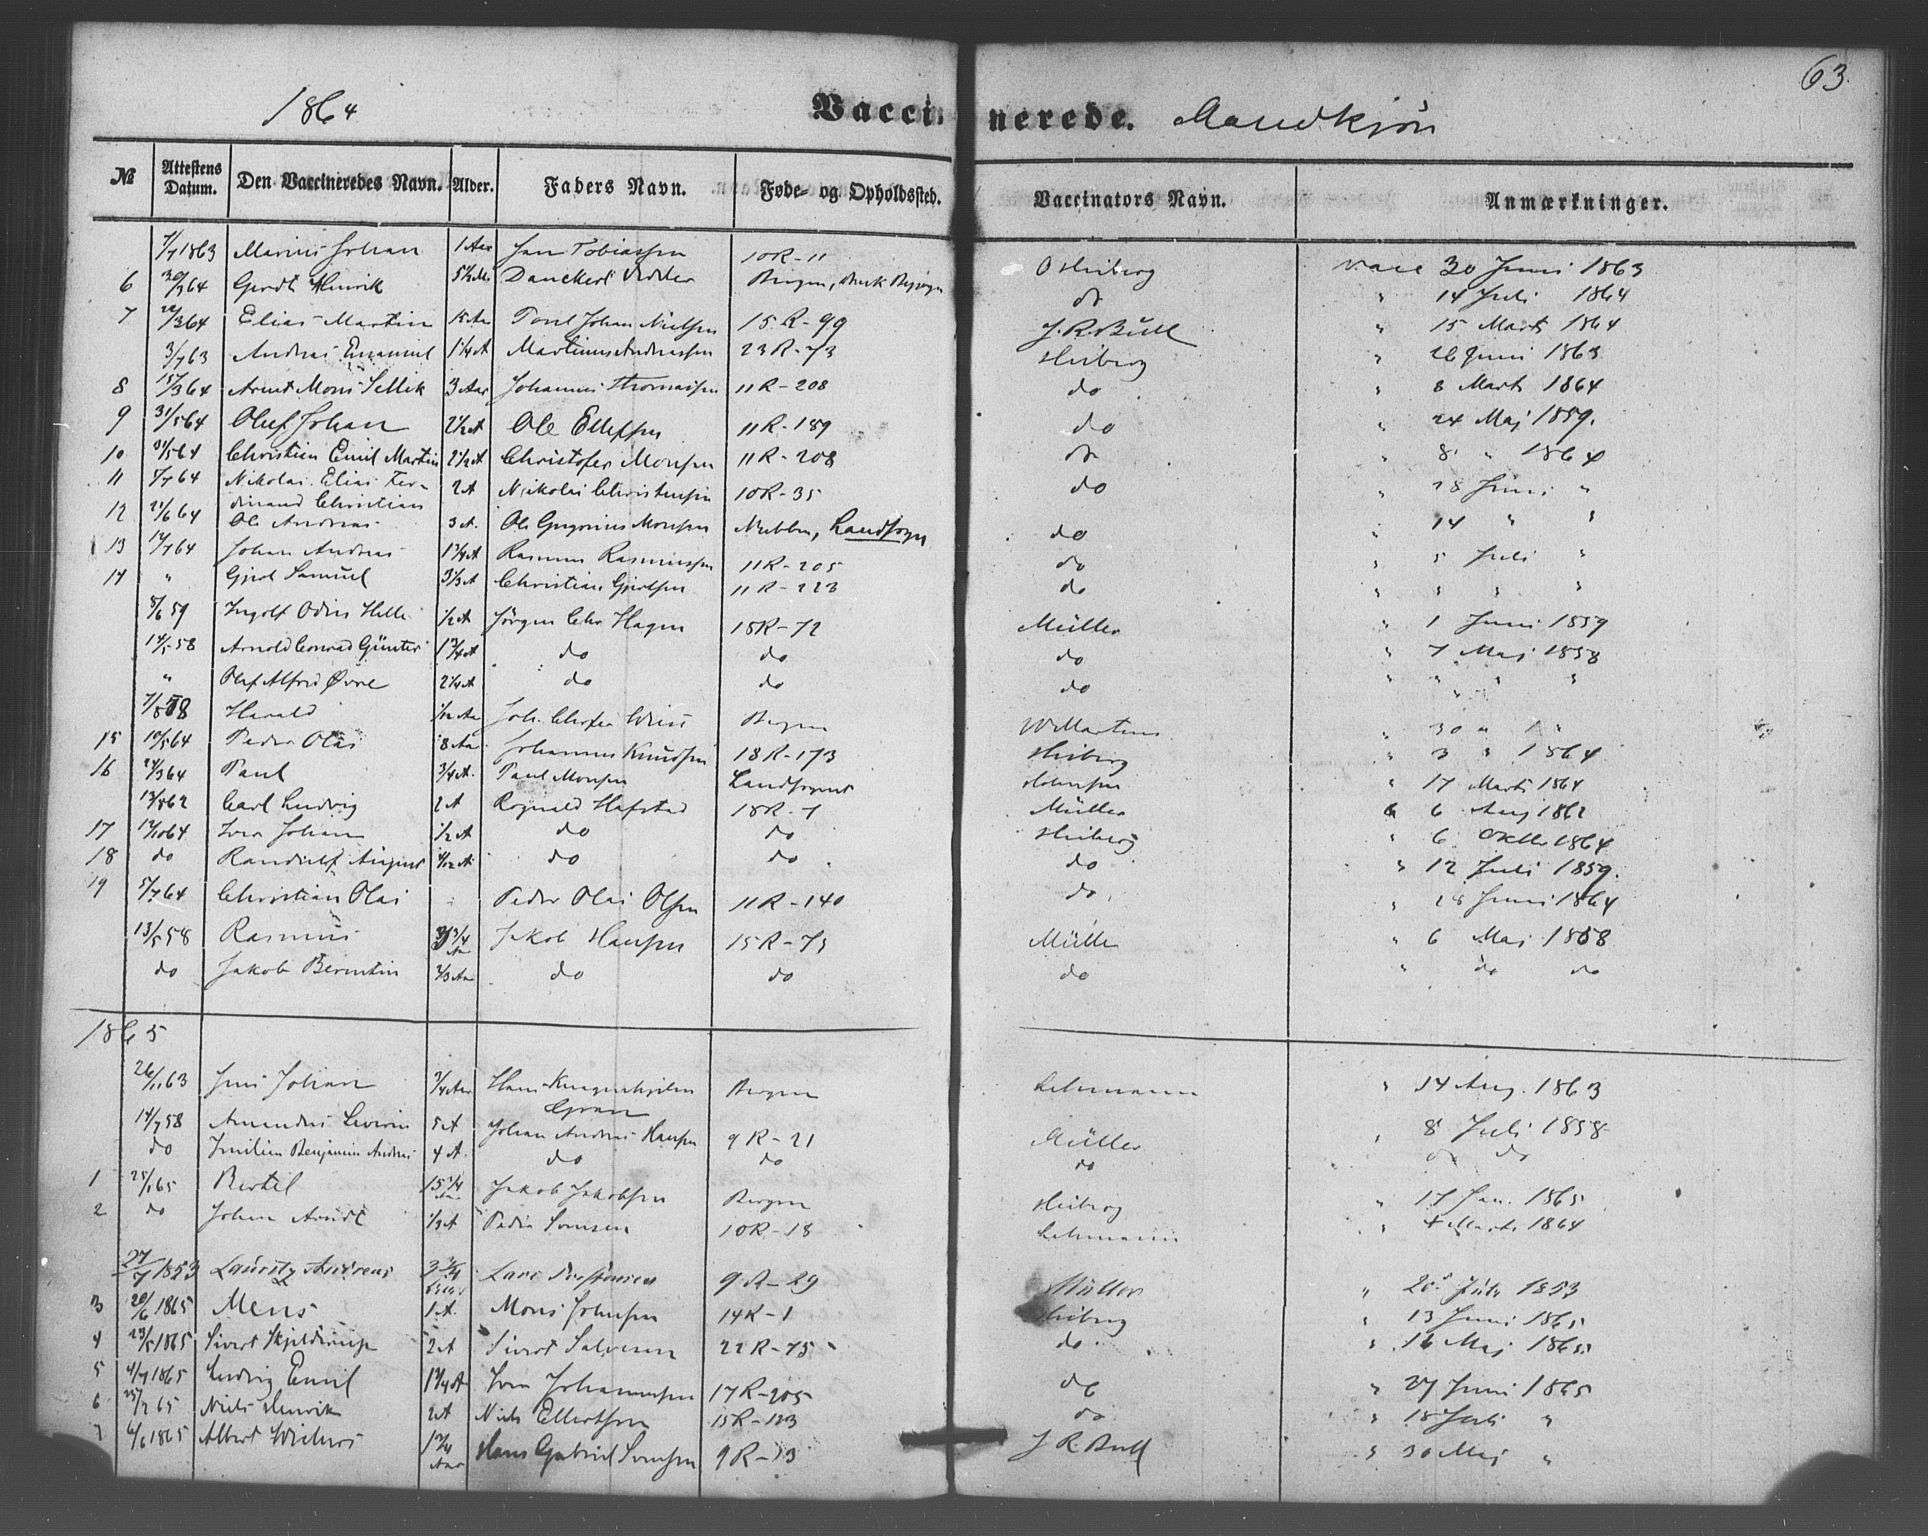 63.
1864 Vaccinerede. Mandkjön
№ Attestens Datum. Den Vaccineredes Navn. Alder. Faders Navn. Føde- og Opholdssted. Vaccinators Navn. Anmærkninger.
7/7 1863 Marius Johan 1 Aar Jan Tobiassen 10R-11 O Heiberg vacc 30 Juni 1863
6 30/7 64 Gerdt Henrik Danckert Bergen, do " 14 Juli 1864
7 22/3 64 Elias Martin Johan Nielsen 15 R-99 J. R Bull " 15 Marts 1864
3/7 63 Andreas Emanuel 1 1/4 A Martinus Andreassen 23R-73 Heiberg " 26 Juni 1863
8 15/3 64 Arent Mons Sellik 3 Aar Johannes Thomassen 11R-208 do " 8 Marts 1864
9 31/5 64 Oluf Johan 2 1/2 A Ole Ellefsen 11R-189 do " 24 Maj 1859.
10 31/5 64 Christian Emil Martin 2 1/2 A Christofer Monsen 11R-208 do " 8 " 1864
11 7/7 64 Nikolai Elias Fer- 2 A Nikolai Christensen 10R-35 do " 28 Juni "
dinand Christian
12 21/6 64 Ole Andreas 3 A. Ole Gregorius Monsen Nubben, Landsogn do " 14 " "
13 12/7 64 Johan Andreas 1 3/4 A Rasmus Rasmussen 11R-205 do " 5 Juli "
14 " Gjert Samuel 3 1/3 A Christian Gjertsen 11R-223 do " " " "
8/6 59 Ingolf Odin Helle 1/2 A Jörgen Chr Hagen 18R-72 Müller " 1 Juni 1859
14/5 58 Arnold Conrad Günter 1 3/4 A do do do " 7 Maj 1858
" Oluf Alfred Øvre 2 1/4 A do do do " " " "
7/8 58 Harald Joh. Bergen W Martens " 30 "
15 10/5 64 Peder Olai 8 Aar Johannes Knudsen 18R-173 Heiberg " 3 " 1864
16 24/3 64 Paul 3/4 A. Paul Monsen Landsognet " 17 Marts 1864
13/8 62 Carl Ludvig 2 A Rognald Hafstad 18R-7 Müller 6 Aug 1862
17 12/10 64 Iver Johan 1/2 A do do Heiberg " 6 Oktbr 1864
18 do Randulf August do do. do " 12 Juli 1859.
19 5/7 64 Christian Olai Peder Olai Olsen 11R-140 do. " 28 Juni 1864
13/5 58 Rasmus 3 3/4 Aar Jakob Hansen 15R-75 Müller " 6 Maj 1858
do Jakob Berentin 2/3 Aar do do do " do do
1865
26/11 63 Jens Johan 3/4 Aar Hans Bergen Lehmann " 14 Aug. 1863
Gran
14/7 58 Amandus Severin 5 A Johan Andreas Hansen 9R-21 Müller " 8 Juli 1858
do Emilius Benjamin Andreas 4 A. do do do do do
1 25/1 65 Bertel 15 3/4 Aar Jakob Jakobsen Bergen Heiberg " 17 Jan. 1865
2 do Johan Arndt 1/3 A Peder 10R-18 Lehmann " 4 Marts 1864
27/7 1853 Lauritz Andreas 3 3/4 Lars 9R-29 Müller " 20 Juli 1853
3 20/6 1865 Mens 1 A. Mons Johnsen 14R-1 Heiberg " 13 Juni 1865
4 23/5 1865 Sivert Skjelderup 2 A Sivert Salvesen 22R-75 do " 16 Maj 1865
5 4/7 1865 Ludvig Emil 1 3/4 A Iver Johannessen 17R-205 do " 27 Juni 1865
6 25/7 65 Niels Henrik 2 A Niels Ellertsen 15R-123 do " 18 Juli "
7 6/6 1865 Albert Wilhelm 1 3/4 Aar Hans Gabriel 9R-13 J R Bull " 30 Maj "